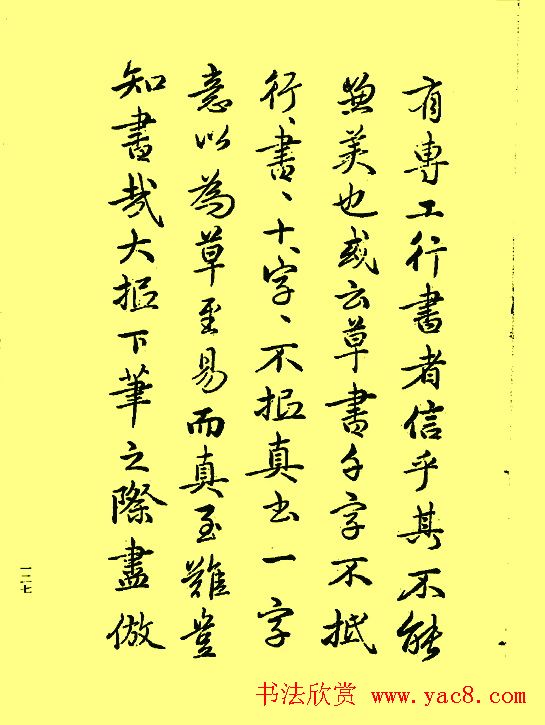 有專工行書者信乎其不能
兼美也或云草書千字不抵
行〻書〻十〻字〻不抵真書一字
意以為草至易而真至難豈
知書哉大抵下筆之際盡倣
一二七
书法欣赏 www.yac8.com